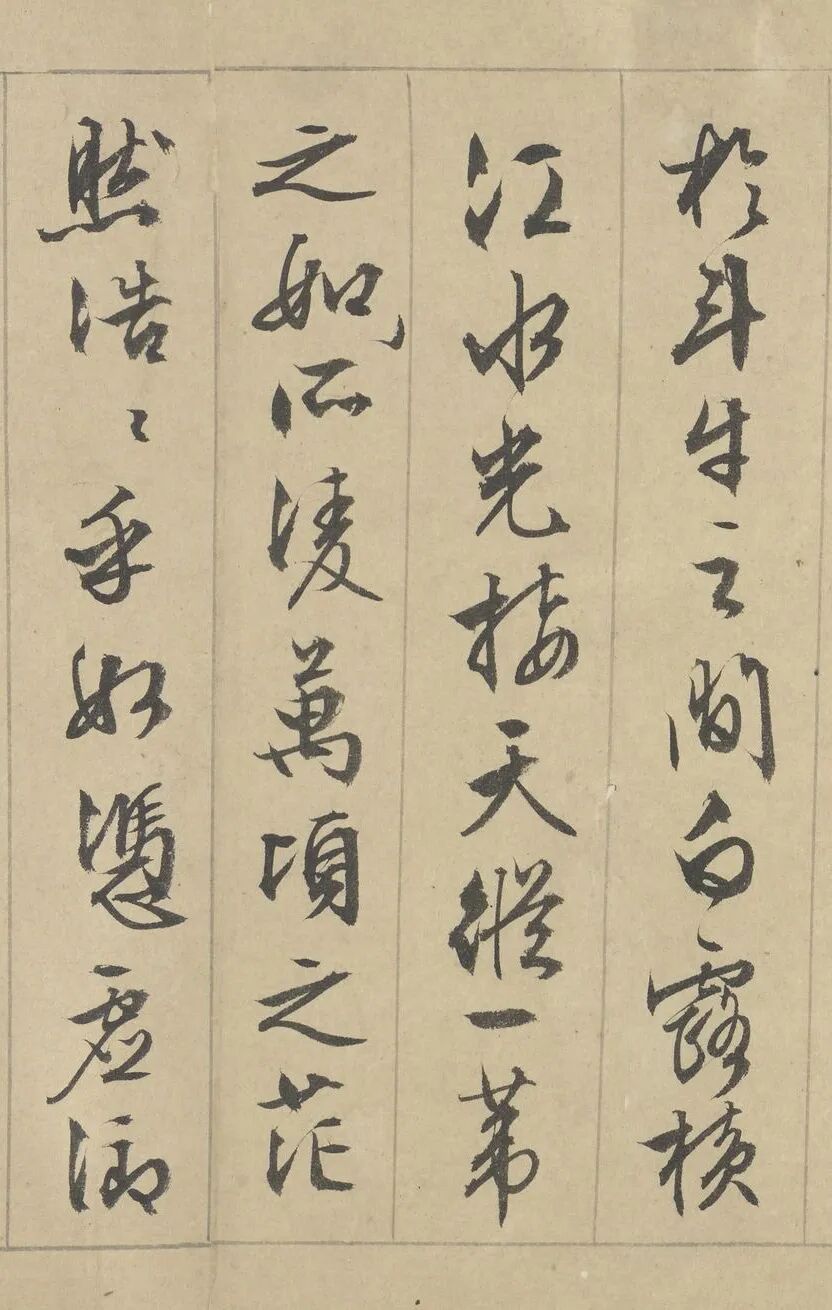 於斗牛之間白露橫
江水光接天縱一葦
之如所淩萬頃之茫
然浩〻乎如憑虛御